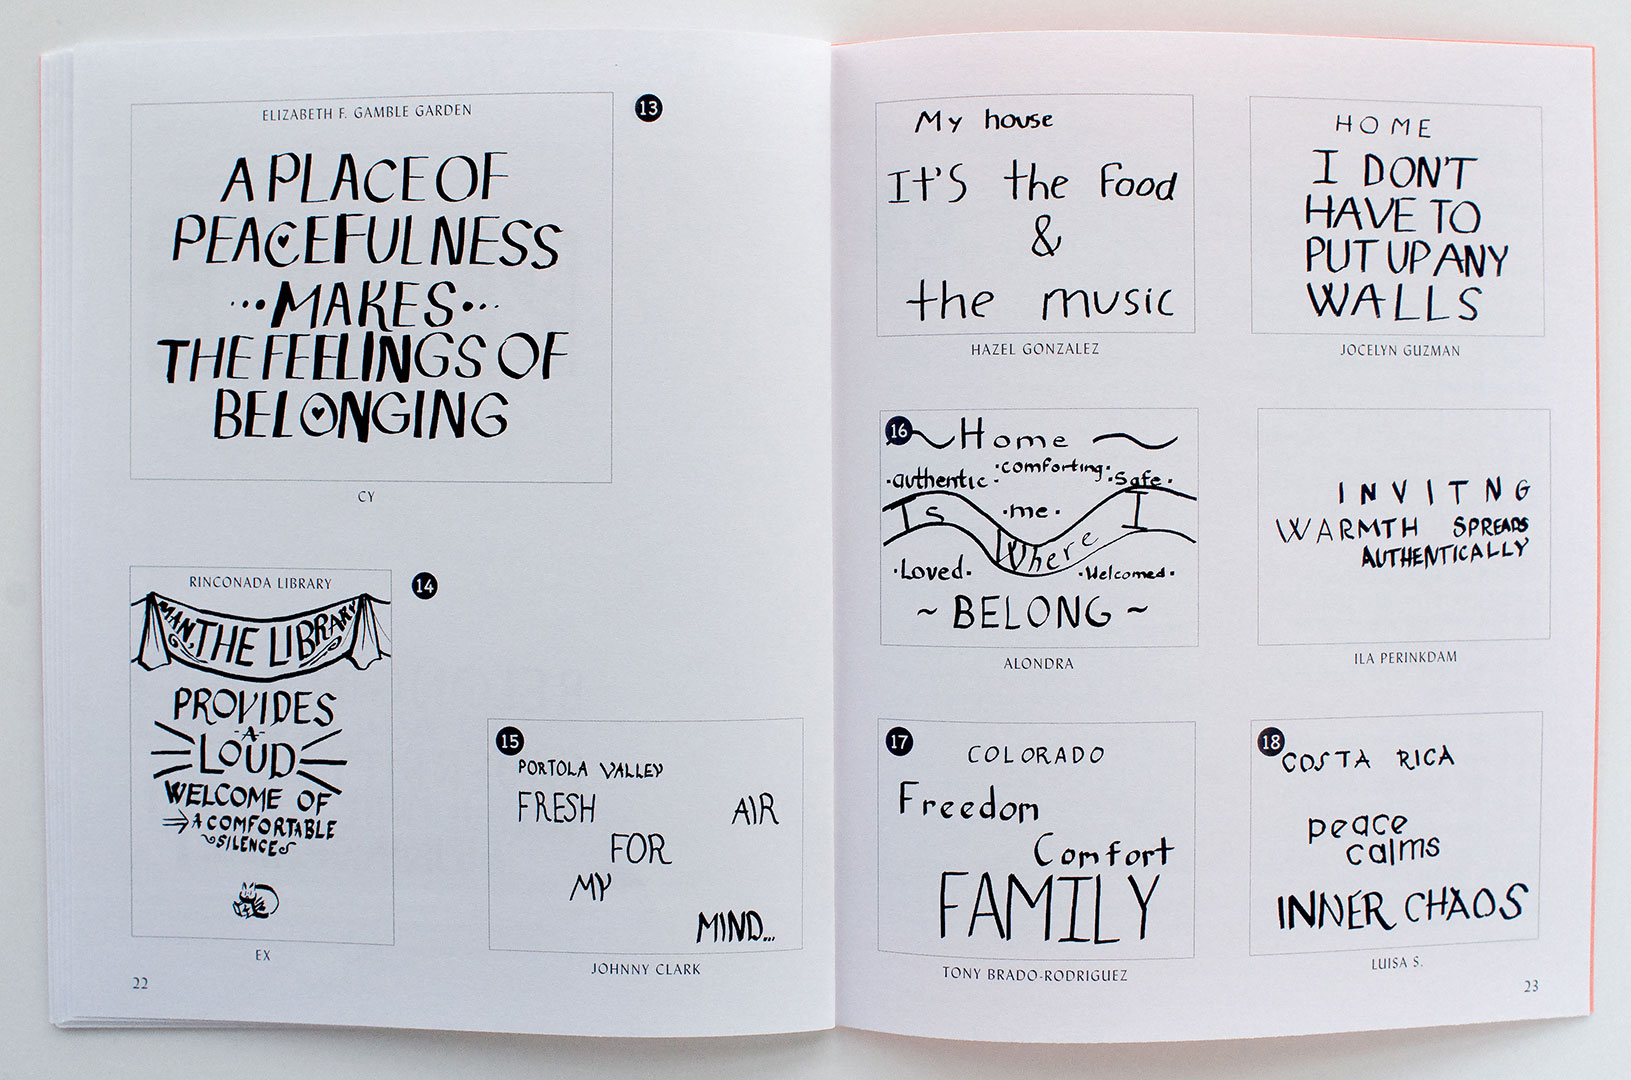 ELIZABETH F. GAMBLE GARDEN
13
A PLACE OF
PEACEFULNESS
...MAKES...
THE FEELINGS OF
BELONGING
CY
RINCONADA LIBRARY
14
MAN, THE LIBRARY
PROVIDES
-A-
LOUD
WELCOME OF
A COMFORTABLE
SILENCE
EX
22
15
PORTOLA VALLEY
FRESH AIR
FOR
MY
MIND...
JOHNNY CLARK
My house
It's the food
&
the music
HAZEL GONZALEZ
HOME
I DON'T
HAVE TO
PUT UP ANY
WALLS
JOCELYN GUZMAN
16
Home
·authentic· ·comforting· ·Safe·
Is ·me· I
Where
·Loved· ·Welcomed·
~ BELONG ~
ALONDRA
INVITNG
WARMTH SPREADS
AUTHENTICALLY
ILA PERINKDAM
17
COLORADO
Freedom
Comfort
FAMILY
TONY BRADO-RODRIGUEZ
18
COSTA RICA
peace
calms
INNER CHAOS
LUISA S.
23